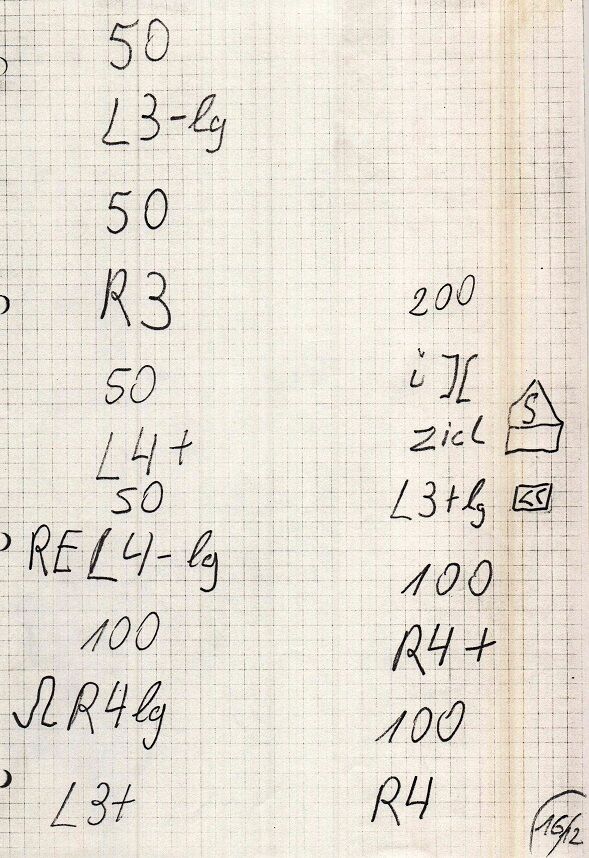 50
L3-lg
50
R3
50
L4+
50
REL4-lg
100
Ω R4lg
L3+
200
ü ][
ziel S
L3+lg
100
R4+
100
R4
16/12